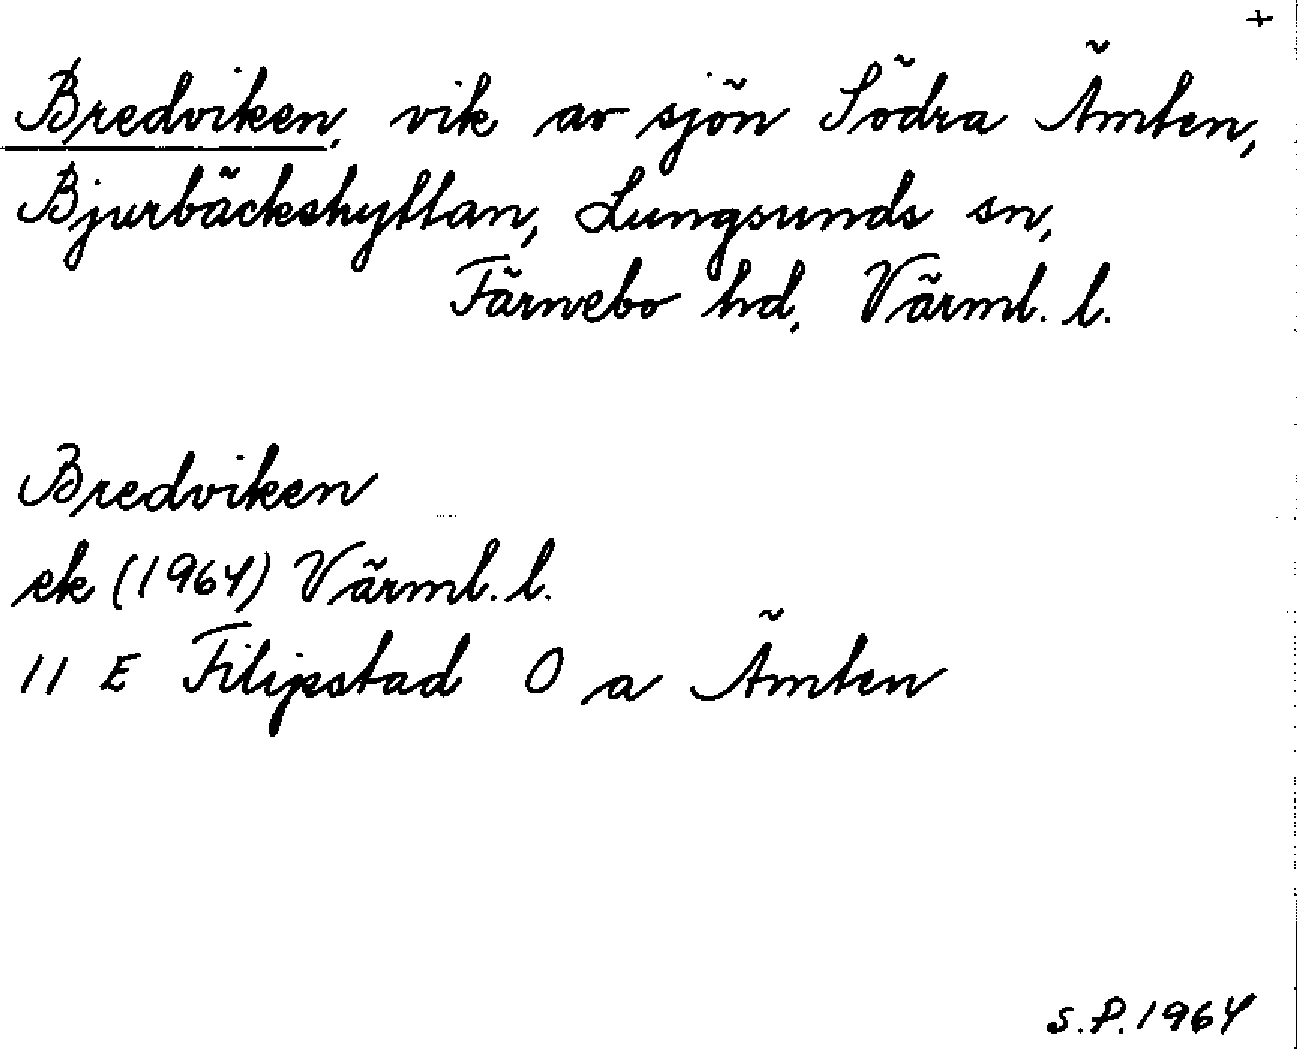 +
Bredviken, vik av sjön Södra Ämten,
Bjurbäckshyttan, Lungsunds sn,
Färnebo hd, Värml. l.
Bredviken
ek (1964) Värml. l.
11 E Filipstad 0 a Ämten
S.P. 1964